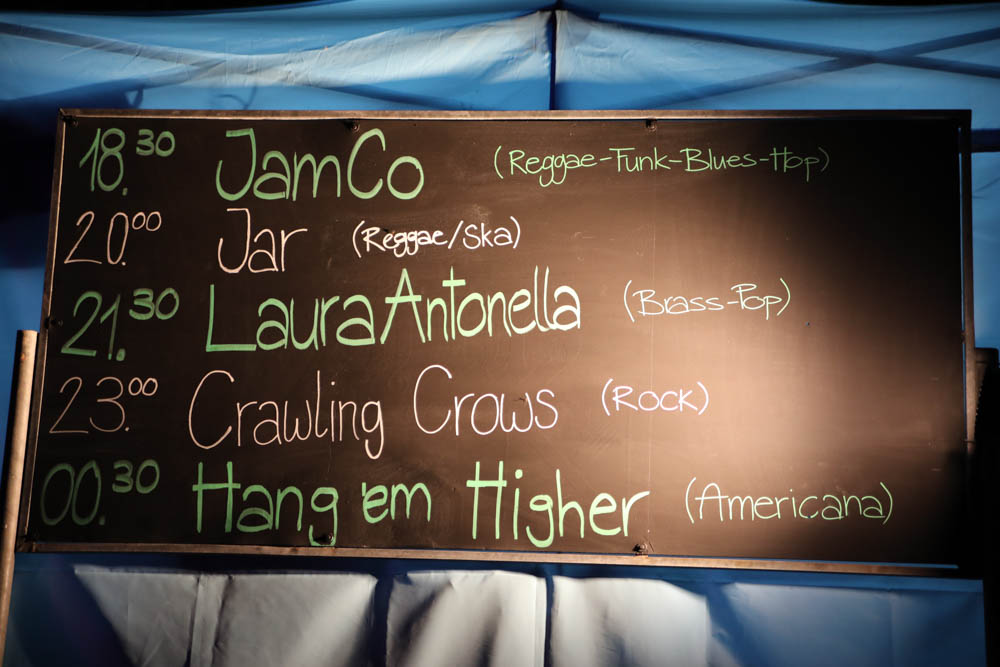 18.30 JamCo (Reggae-Funk-Blues-Hop)
20.00 Jar (Reggae/Ska)
21.30 Laura Antonella (Brass-Pop)
23.00 Crawling Crows (Rock)
00.30 Hang 'em Higher (Americana)